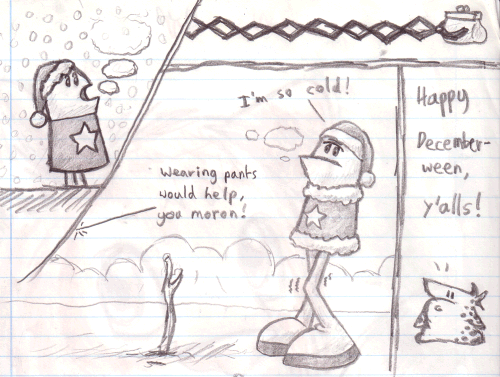 I'm so cold!
Wearing pants
would help,
you moron!
Happy
December-
ween,
y'alls!